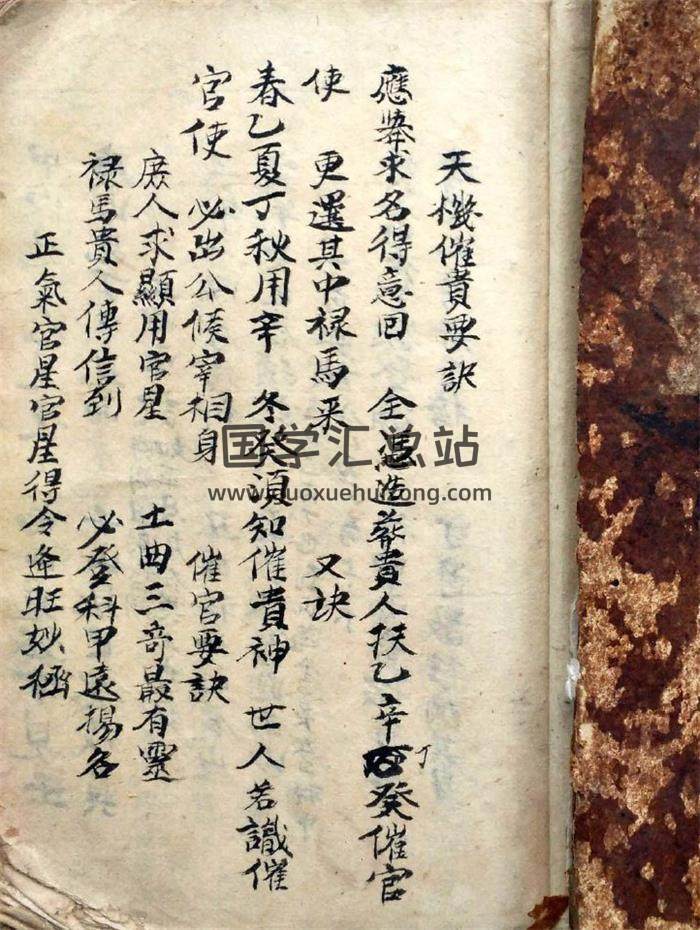 天機催貴要訣
應舉求名得意回 全憑造葬貴人扶乙辛丁癸催官
使 更選其中禄馬来 又訣
春乙夏丁秋用辛 冬癸須知催貴神 世人若識催
官使 必出公候宰相身 催官要訣
庶人求顯用官星 土曲三奇最有靈
禄馬貴人傳信到 必登科甲遠揚名
正氣官星官星得令逢旺妙極
国学汇总站
www.guoxuehuizong.com